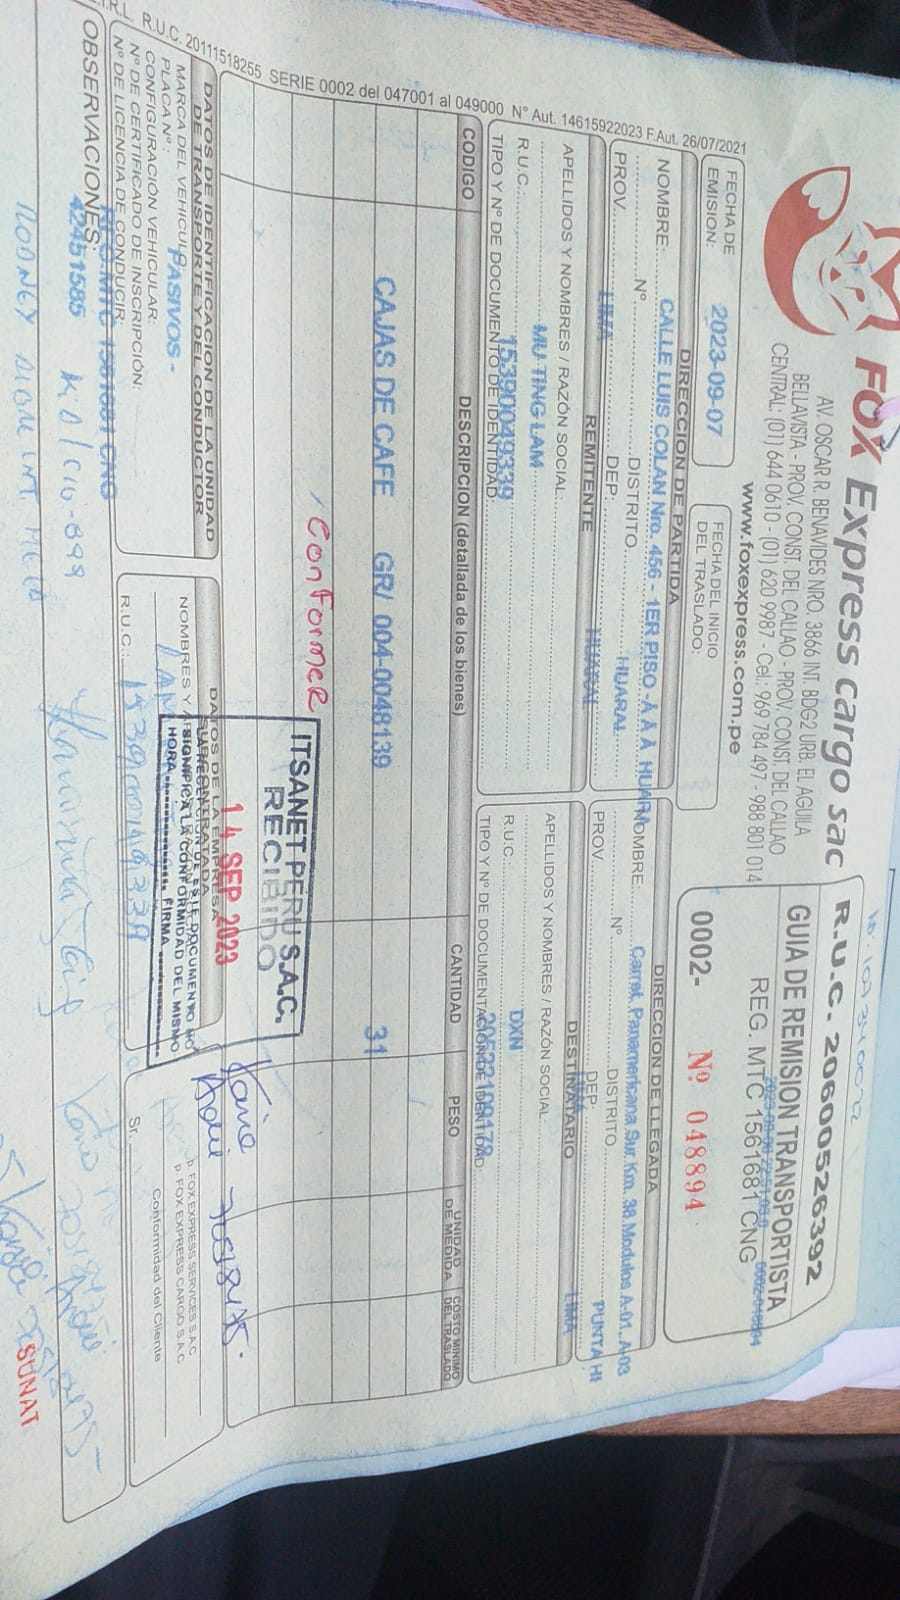 FOX Express cargo sac
AV. OSCAR R. BENAVIDES NRO. 3866 INT. BDG2 URB. EL AGUILA
BELLAVISTA - PROV. CONST. DEL CALLAO - PROV. CONST. DEL CALLAO
CENTRAL: (01) 644 0610 - (01) 620 9987 - Cel.: 969 784 497 - 988 801 014
www.foxexpress.com.pe
R.U.C. 20600526392
GUIA DE REMISION TRANSPORTISTA
REG. MTC 1561681 CNG
0002- Nº 048894
FECHA DE EMISION: 2023-09-07
FECHA DEL INICIO DEL TRASLADO:
DIRECCION DE PARTIDA
NOMBRE: CALLE LUIS COLAN Nro. 456 - 1ER PISO - A A A HUAR
Nº DISTRITO HUARAL
PROV. LIMA DEP: HUARAL
DIRECCION DE LLEGADA
NOMBRE: Carret. Panamericana Sur Km. 38 Modulos A-01, A-03
Nº DISTRITO PUNTA H
PROV. LIMA DEP: LIMA
REMITENTE
APELLIDOS Y NOMBRES / RAZÓN SOCIAL:
MU TING LAM
R.U.C. 15390049339
TIPO Y Nº DE DOCUMENTO DE IDENTIDAD:
DESTINATARIO
APELLIDOS Y NOMBRES / RAZÓN SOCIAL:
DXN
R.U.C.:
TIPO Y Nº DE DOCUMENTACIÓN DE IDENTIDAD:
CODIGO DESCRIPCION (detallada de los bienes) CANTIDAD PESO UNIDAD DE MEDIDA COSTO MINIMO DEL TRASLADO
CAJAS DE CAFE GR/ 004-0048139 31
Conformer
ITSANET PERU S.A.C.
RECIBIDO
14 SEP 2023
LA RECEPCION DE ESTE DOCUMENTO NO
SIGNIFICA LA CONFORMIDAD DEL MISMO
HORA FIRMA
DATOS DE IDENTIFICACION DE LA UNIDAD DE TRANSPORTE Y DEL CONDUCTOR
MARCA DEL VEHICULO: PASIVOS -
PLACA Nº:
CONFIGURACIÓN VEHICULAR:
Nº DE CERTIFICADO DE INSCRIPCIÓN:
Nº DE LICENCIA DE CONDUCIR:
DATOS DE LA EMPRESA SUBCONTRATADA
NOMBRES Y
R.U.C.:
p. FOX EXPRESS SERVICES S.A.C.
p. FOX EXPRESS CARGO S.A.C.
Conformidad del Cliente
Sr.
OBSERVACIONES:
42451585
SUNAT
R.L. R.U.C. 20111518255 SERIE 0002 del 047001 al 049000 Nº Aut. 14615922023 F.Aut. 26/07/2021